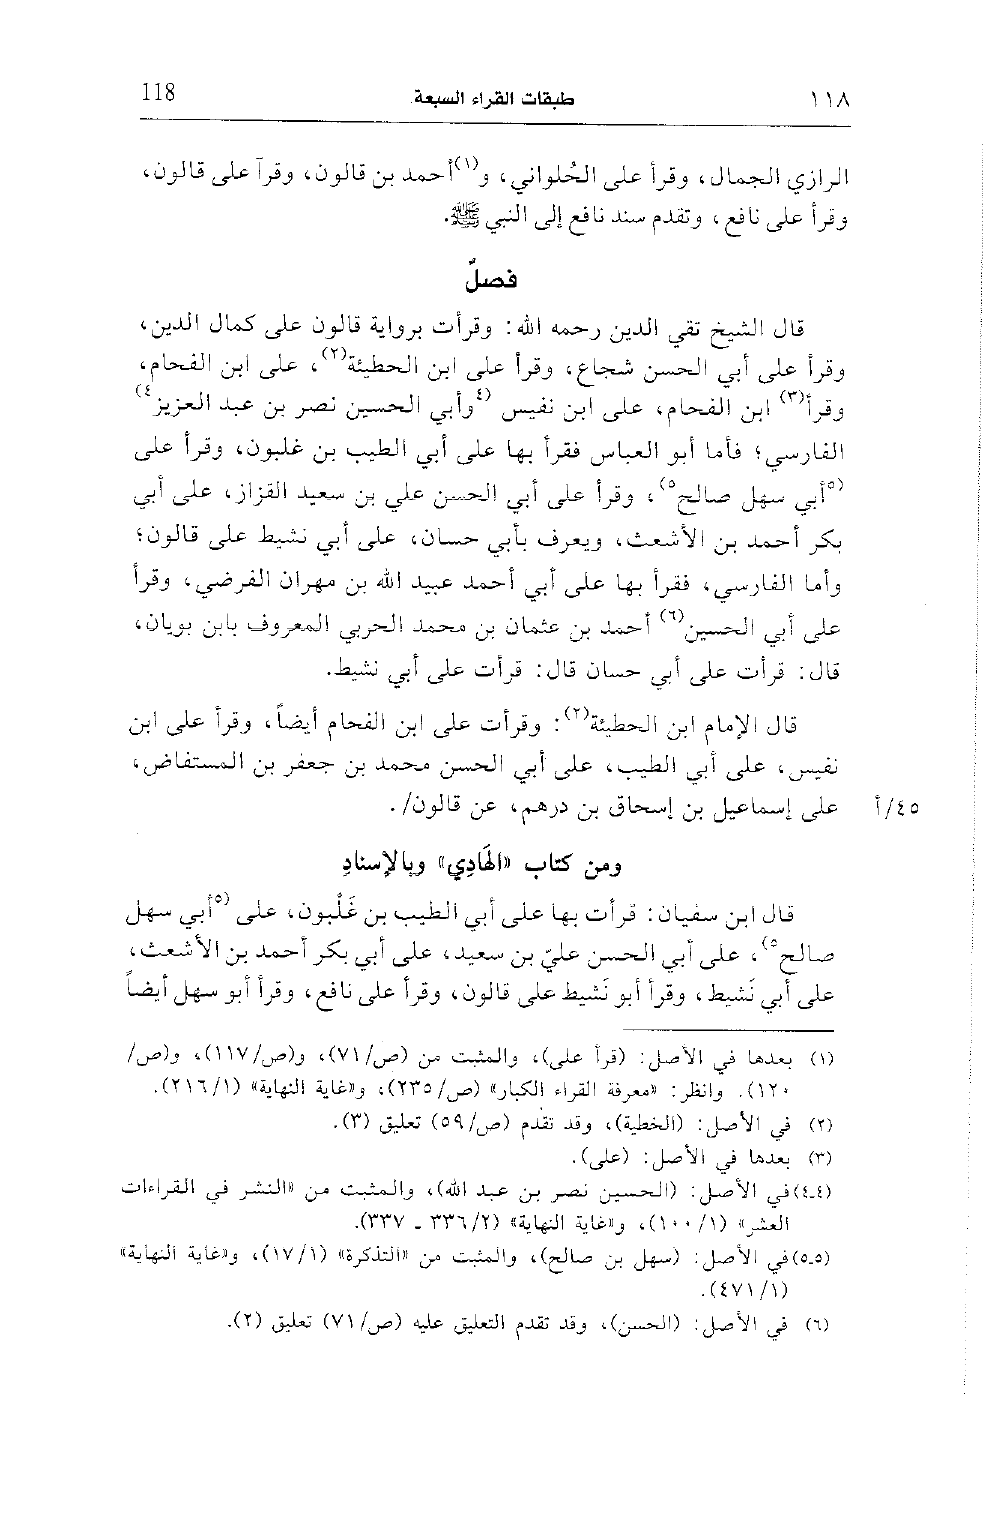 ١١٨ طبقات القراء السبعة 118
الرازي الجمال، وقرأ على الحُلواني، و(١)أحمد بن قالون، وقرآ على قالون،
وقرأ على نافع، وتقدم سند نافع إلى النبي ﷺ.
فصلٌ
قال الشيخ تقي الدين رحمه الله: وقرأت برواية قالون على كمال الدين،
وقرأ على أبي الحسن شجاع، وقرأ على ابن الحطيئة(٢)، على ابن الفحام،
وقرأ(٣) ابن الفحام، على ابن نفيس (٤وأبي الحسين نصر بن عبد العزيز٤)
الفارسي؛ فأما أبو العباس فقرأ بها على أبي الطيب بن غلبون، وقرأ على
(٥أبي سهل صالح٥)، وقرأ على أبي الحسن علي بن سعيد القزاز، على أبي
بكر أحمد بن الأشعث، ويعرف بأبي حسان، على أبي نشيط على قالون؛
وأما الفارسي، فقرأ بها على أبي أحمد عبيد الله بن مهران الفرضي، وقرأ
على أبي الحسين(٦) أحمد بن عثمان بن محمد الحربي المعروف بابن بويان،
قال: قرأت على أبي حسان قال: قرأت على أبي نشيط.
قال الإمام ابن الحطيئة(٢): وقرأت على ابن الفحام أيضاً، وقرأ على ابن
نفيس، على أبي الطيب، على أبي الحسن محمد بن جعفر بن المستفاض،
على إسماعيل بن إسحاق بن درهم، عن قالون/. ٤٥/أ
ومن كتاب «الهَادِي» وبالإسنادِ
قال ابن سفيان: قرأت بها على أبي الطيب بن غَلْبون، على (٥أبي سهل
صالح٥)، على أبي الحسن عليّ بن سعيد، على أبي بكر أحمد بن الأشعث،
على أبي نَشيط، وقرأ أبو نَشيط على قالون، وقرأ على نافع، وقرأ أبو سهل أيضاً
(١) بعدها في الأصل: (قرأ على)، والمثبت من (ص/٧١)، و(ص/١١٧)، و(ص/
١٢٠). وانظر: «معرفة القراء الكبار» (ص/٢٣٥)، و«غاية النهاية» (٢١٦/١).
(٢) في الأصل: (الخطية)، وقد تقدم (ص/٥٩) تعليق (٣).
(٣) بعدها في الأصل: (على).
(٤ـ٤) في الأصل: (الحسين نصر بن عبد الله)، والمثبت من «النشر في القراءات
العشر» (١٠٠/١)، و«غاية النهاية» (٣٣٦/٢ ـ ٣٣٧).
(٥ـ٥) في الأصل: (سهل بن صالح)، والمثبت من «التذكرة» (١٧/١)، و«غاية النهاية»
(٤٧١/١).
(٦) في الأصل: (الحسن)، وقد تقدم التعليق عليه (ص/٧١) تعليق (٢).